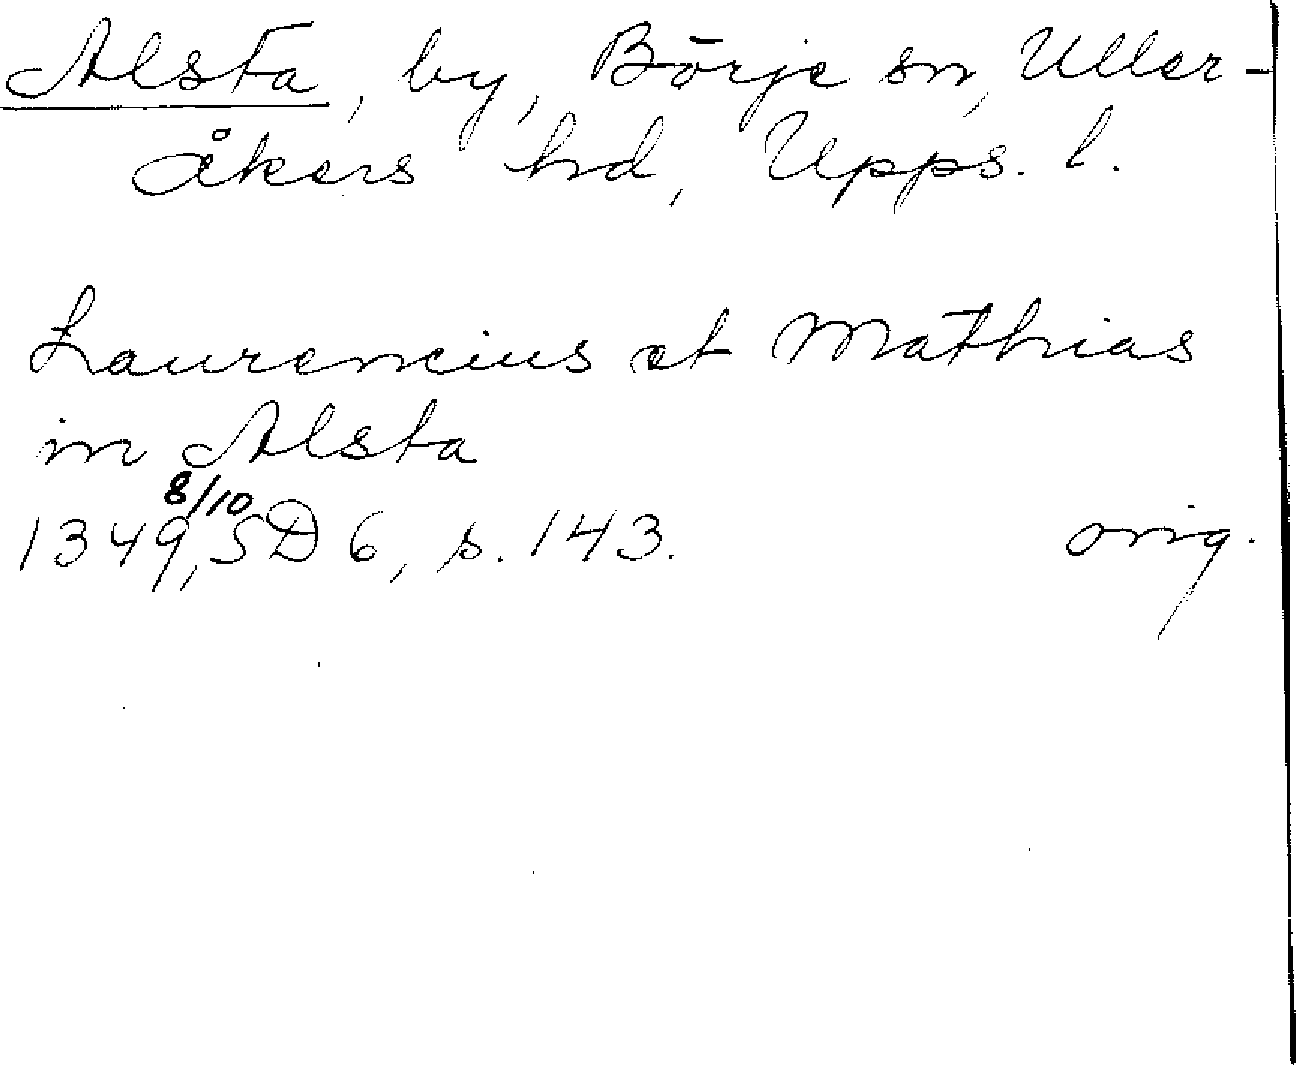 Alsta, by, Börje sn, Uller-
åkers hd, Upps. l.
Laurencius et Mathias
in Alsta
8/10
1349, SD 6, s. 143. orig.